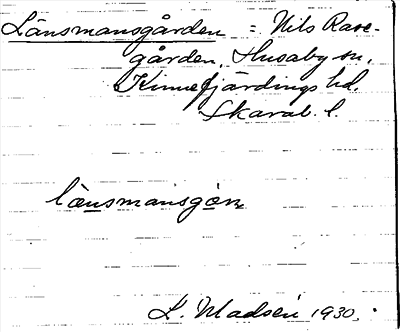 Länsmansgården = Nils Rase-
gården, Husaby sn,
Kinnefjärdings hd,
Skarab. l.
länsmansgən
L. Madsén 1930.